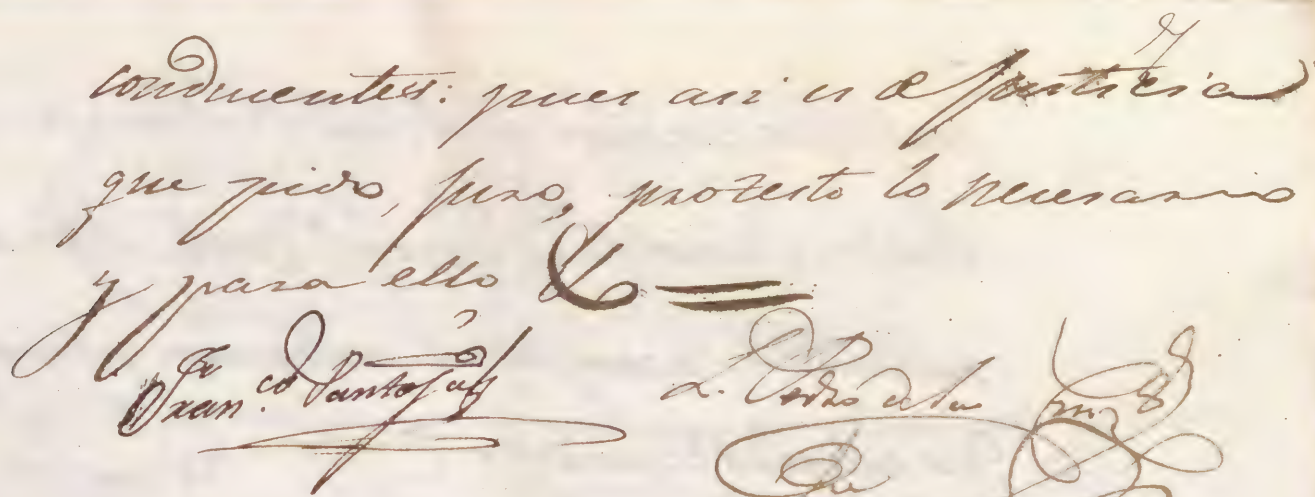 conducentes: pues asi es de Justicia
que pido, juro, protesto lo necesario
y para ello &
Fran.co Pantoja L. Pedro de la